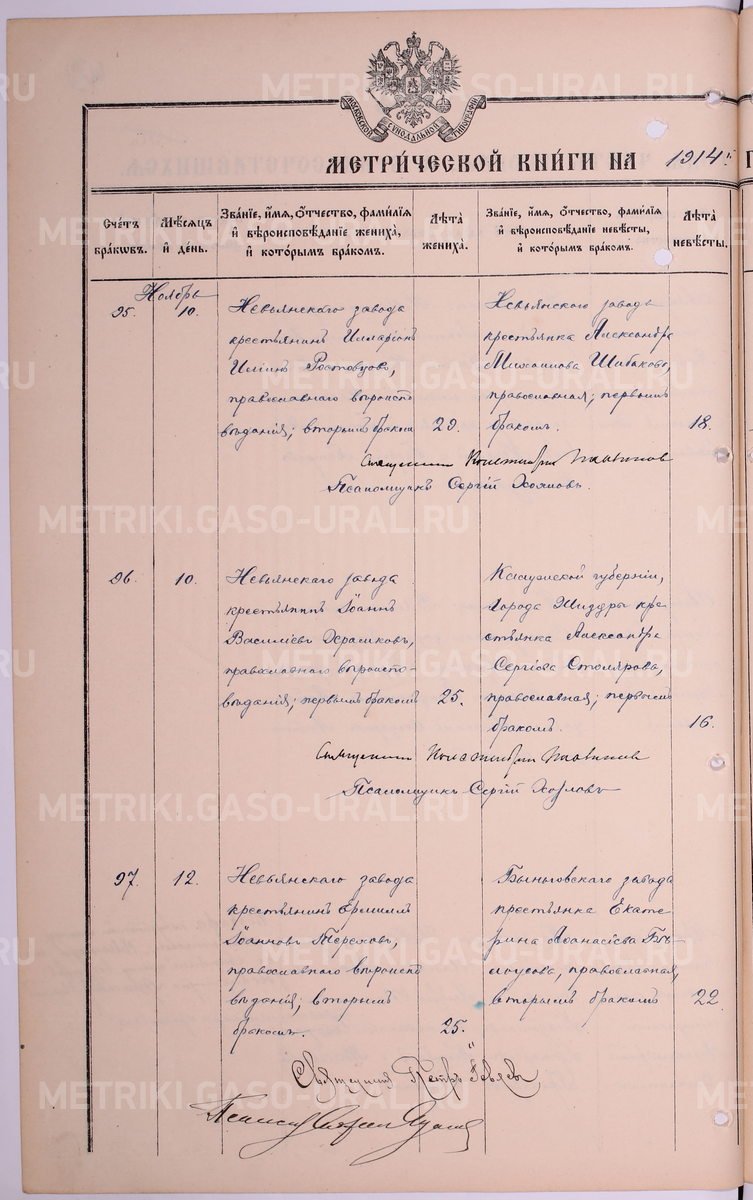 МОСКОВСКОЙ СѴНОДАЛЬНОЙ ТИПОГРАФІИ
МЕТРИ́ЧЕСКОЙ КНИ́ГИ НА 1914
Сче́тъ бра́кωвъ.
Мѣ́сѧцъ и҆ де́нь.
Зва́нїе, и҆́мѧ, ѻ҆́тчество, фами́лїѧ и҆ вѣроисповѣ́данїе жениха̀, и҆ кото́рымъ бра́комъ.
Лѣ́та жениха̀.
Зва́нїе, и҆́мѧ, ѻ҆́тчество, фами́лїѧ и҆ вѣроисповѣ́данїе невѣ́сты, и҆ кото́рымъ бра́комъ.
Лѣ́та невѣ́сты.
Ноябрь
25.
10.
Невьянскаго завода
крестьянинъ Илларіонъ
Иліинъ Ростовцовъ,
православнаго вѣроиспо
вѣданія; вторымъ бракомъ
29.
Невьянскаго завода
крестьянка Александра
Михаилова Шибакова,
православная; первымъ
бракомъ.
18.
Священникъ Константинъ
Псаломщикъ Сергій
26.
10.
Невьянскаго завода
крестьянинъ Іоаннъ
Василіевъ
православнаго вѣроиспо-
вѣданія; первымъ бракомъ
25.
Калужской губерніи,
города Жиздры кре
стьянка Александра
Сергіева Столярова,
православная; первымъ
бракомъ.
16.
Священникъ Константинъ
Псаломщикъ Сергій
27.
12.
Невьянскаго завода
крестьянинъ Ермиллъ
Іоанновъ Тереховъ,
православнаго вѣроиспо
вѣданія; вторымъ
бракомъ.
25.
Быньговскаго завода
крестьянка Екате
рина Аѳанасіева Бѣ-
лоусова, православная,
вторымъ бракомъ
22
Священникъ Петръ
METRIKI.GASO-URAL.RU